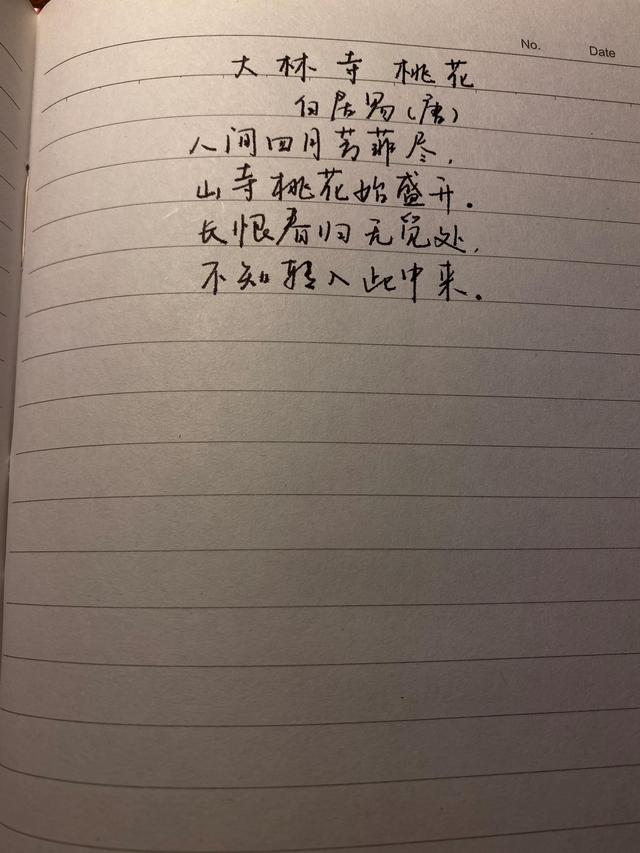 No. Date
大林寺桃花
白居易(唐)
人间四月芳菲尽,
山寺桃花始盛开。
长恨春归无觅处,
不知转入此中来。